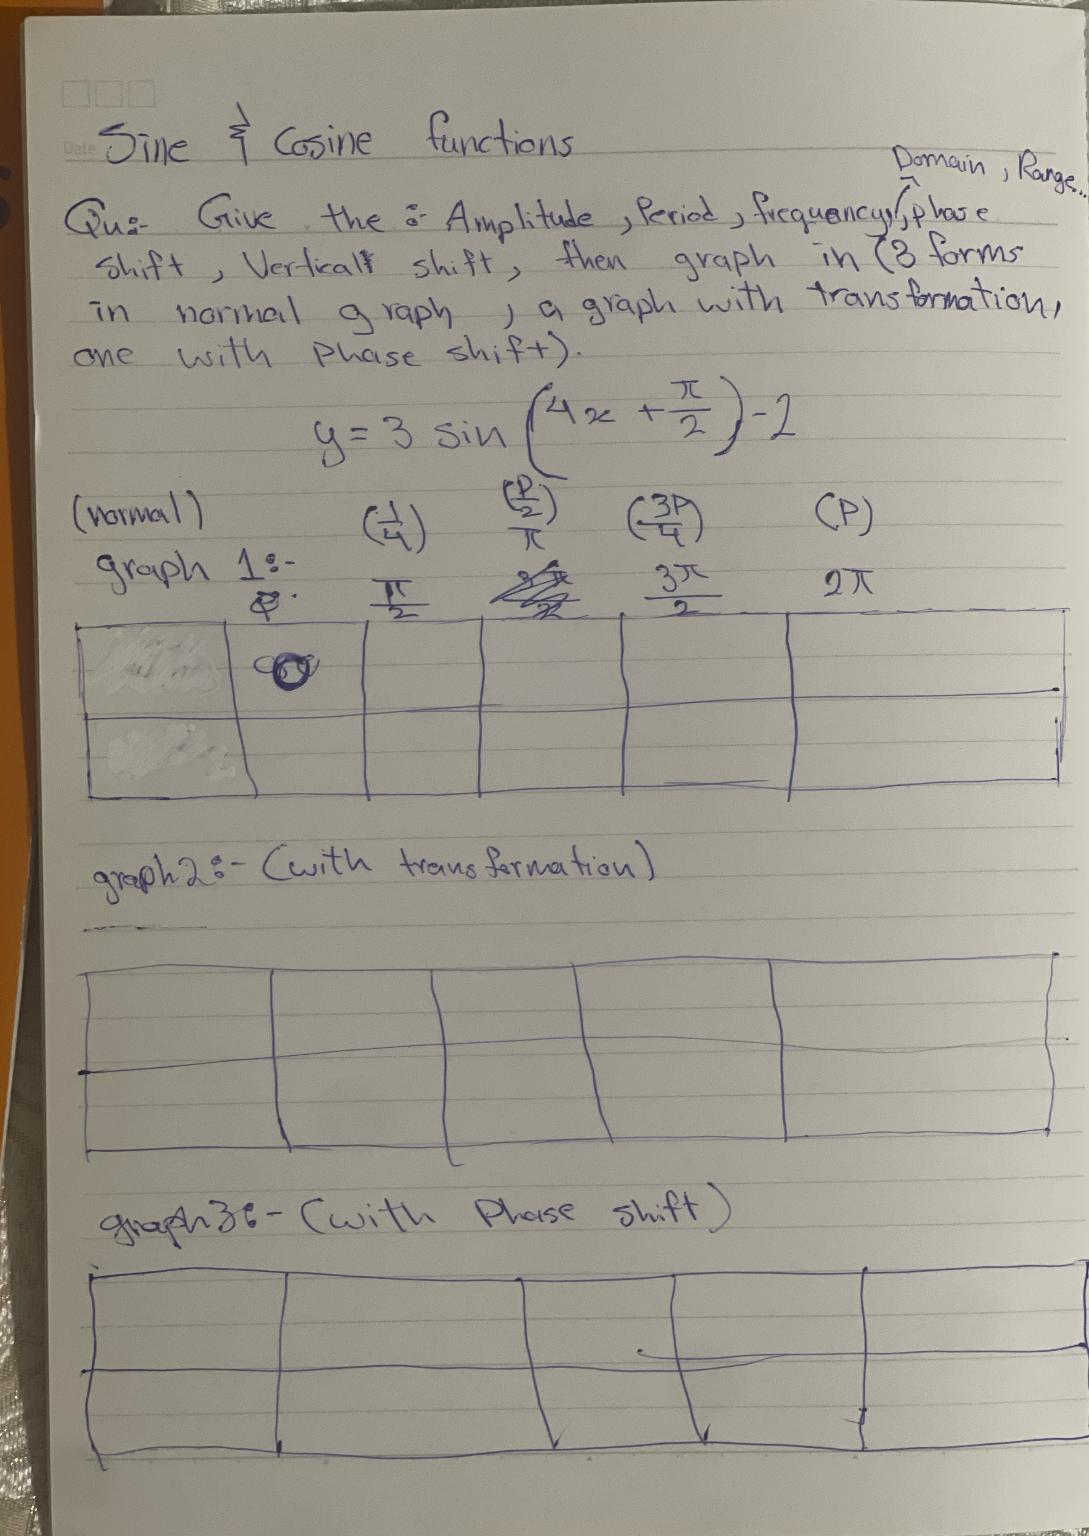 Date
Sine & Cosine functions
Domain, Range...
Qu:- Give the :- Amplitude, Period, frequency, phase
shift, Vertical shift, then graph in (3 forms
in normal graph, a graph with transformation,
one with phase shift).
y = 3 sin (4x + π/2) - 2
(normal) (1/4) (P/2) (3P/4) (P)
graph 1:- π/2 π 3π/2 2π
0
graph 2:- (with transformation)
graph 3:- (with Phase shift)